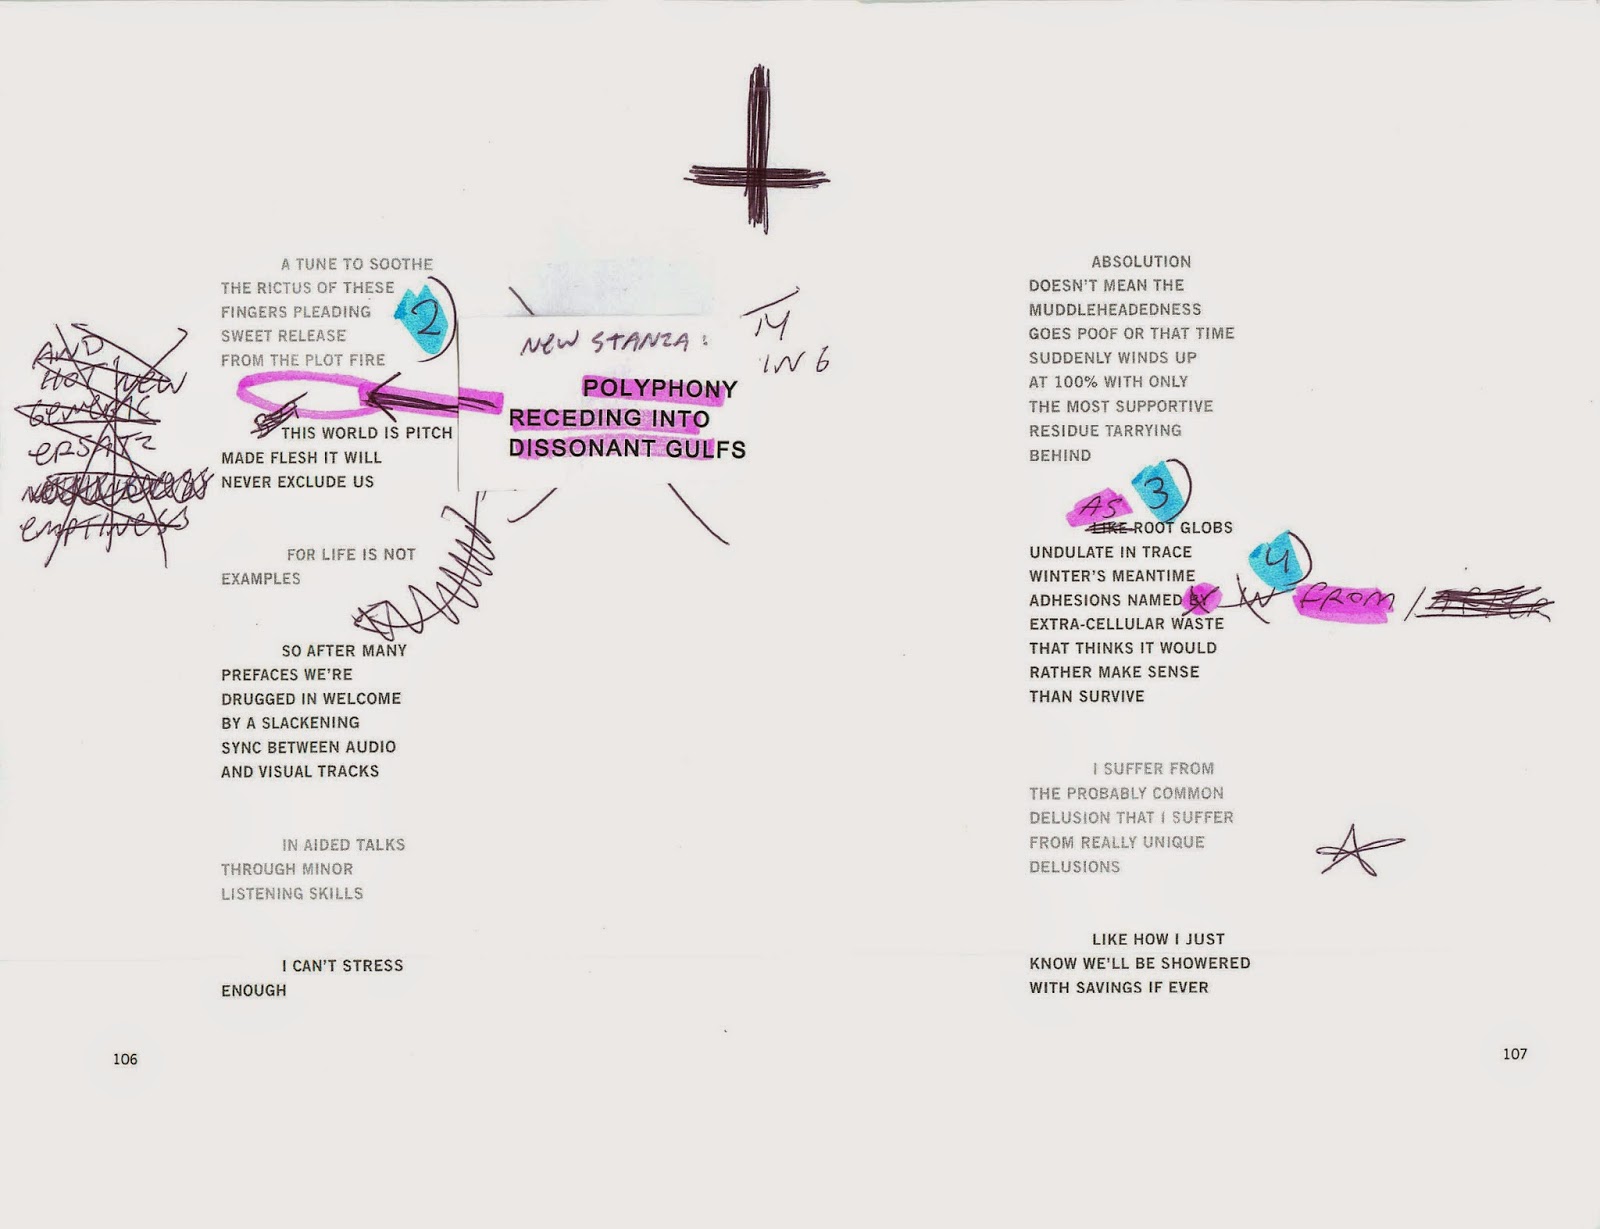 A TUNE TO SOOTHE
THE RICTUS OF THESE
FINGERS PLEADING
SWEET RELEASE
FROM THE PLOT FIRE
2
AND
HOT NEW
GENERIC
ERSATZ
EMPTINESS
NEW STANZA:
IN 6
POLYPHONY
RECEDING INTO
DISSONANT GULFS
THIS WORLD IS PITCH
MADE FLESH IT WILL
NEVER EXCLUDE US
FOR LIFE IS NOT
EXAMPLES
SO AFTER MANY
PREFACES WE'RE
DRUGGED IN WELCOME
BY A SLACKENING
SYNC BETWEEN AUDIO
AND VISUAL TRACKS
IN AIDED TALKS
THROUGH MINOR
LISTENING SKILLS
I CAN'T STRESS
ENOUGH
106
ABSOLUTION
DOESN'T MEAN THE
MUDDLEHEADEDNESS
GOES POOF OR THAT TIME
SUDDENLY WINDS UP
AT 100% WITH ONLY
THE MOST SUPPORTIVE
RESIDUE TARRYING
BEHIND
AS 3
LIKE ROOT GLOBS
UNDULATE IN TRACE
4
WINTER'S MEANTIME
ADHESIONS NAMED BY IN FROM / AFTER
EXTRA-CELLULAR WASTE
THAT THINKS IT WOULD
RATHER MAKE SENSE
THAN SURVIVE
I SUFFER FROM
THE PROBABLY COMMON
DELUSION THAT I SUFFER
FROM REALLY UNIQUE
DELUSIONS
LIKE HOW I JUST
KNOW WE'LL BE SHOWERED
WITH SAVINGS IF EVER
107